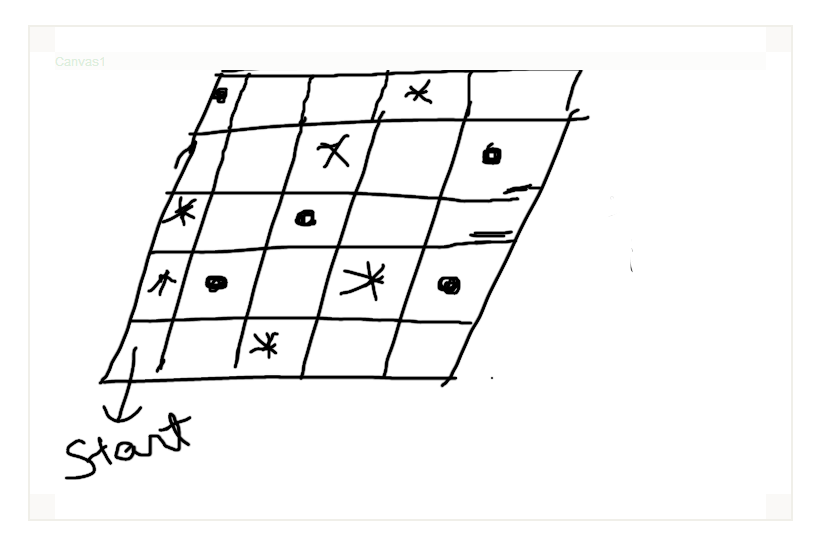 Canvas1
Start